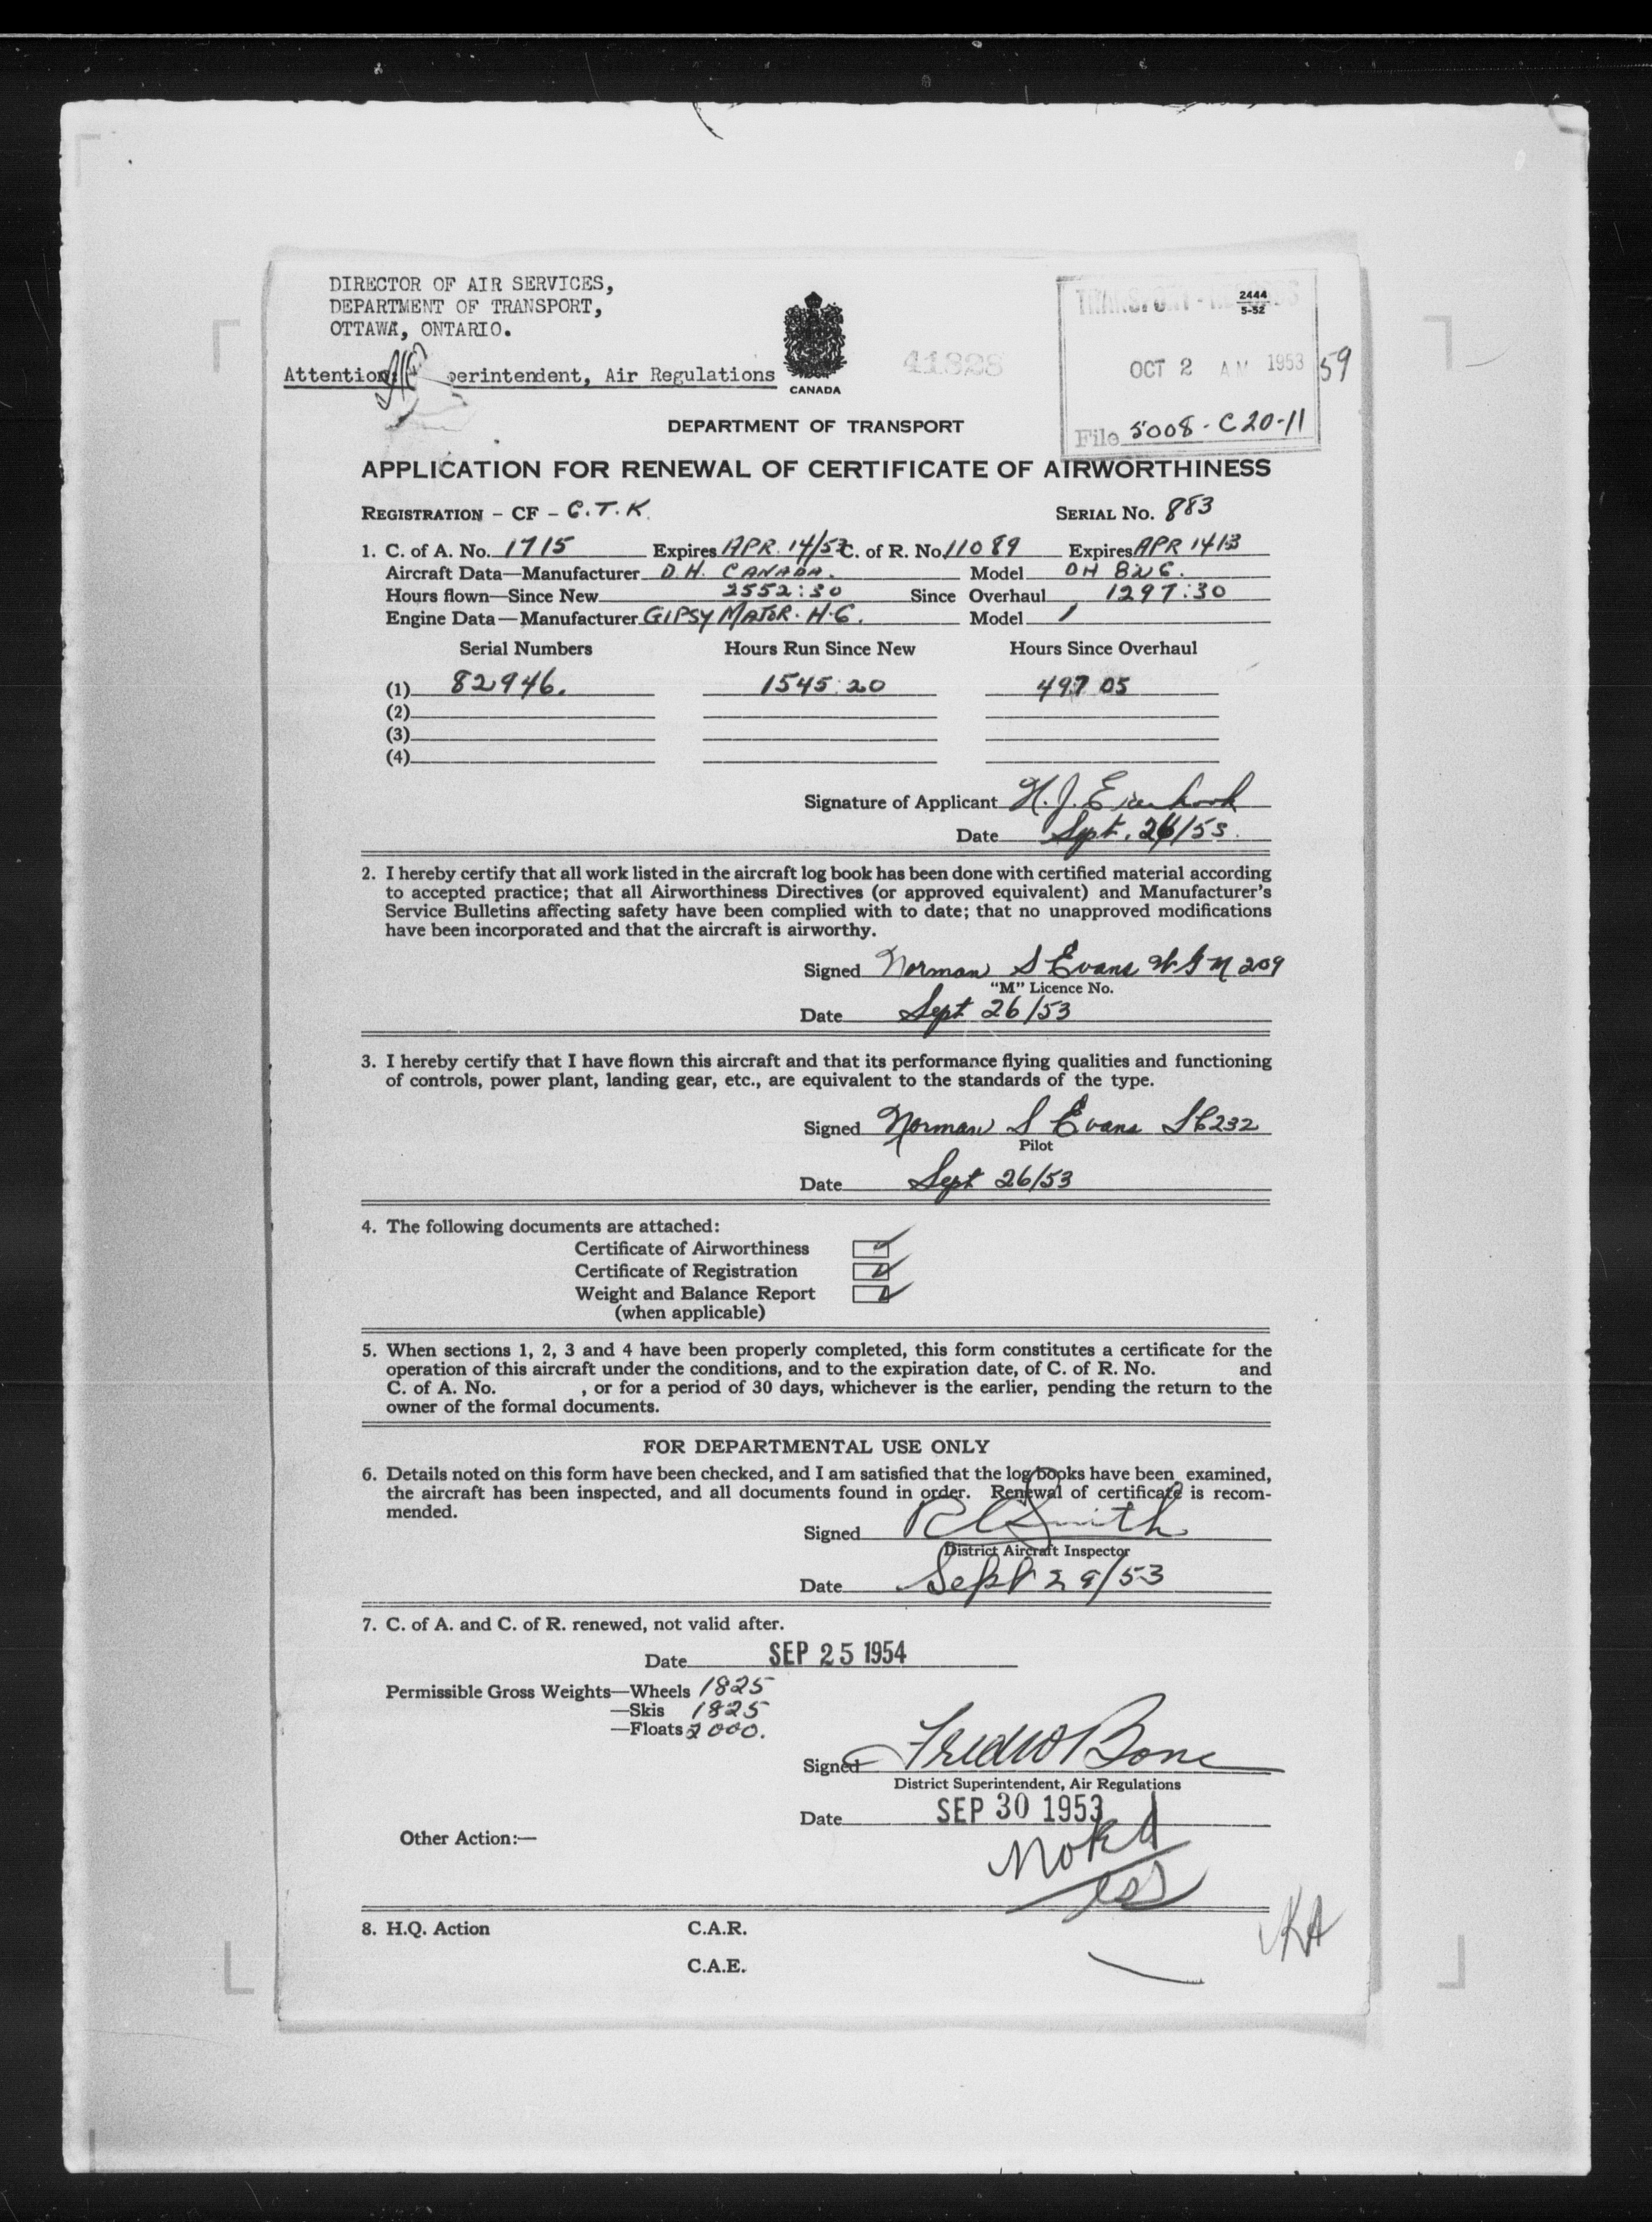 DIRECTOR OF AIR SERVICES,
DEPARTMENT OF TRANSPORT,
OTTAWA, ONTARIO.
Attention: perintendent, Air Regulations
CANADA
41328
TRANSPORT -
2444
5-52
OCT 2 AM 1953
59
File 5008-C20-11
DEPARTMENT OF TRANSPORT
APPLICATION FOR RENEWAL OF CERTIFICATE OF AIRWORTHINESS
REGISTRATION - CF - C.T.K. SERIAL No. 883
1. C. of A. No. 1715 Expires APR. 14/53 C. of R. No. 11089 Expires APR 14/53
Aircraft Data—Manufacturer D.H. CANADA. Model DH 82C.
Hours flown—Since New 2552:30 Since Overhaul 1297:30
Engine Data—Manufacturer GIPSY MAJOR. H.C. Model 1
Serial Numbers Hours Run Since New Hours Since Overhaul
(1) 82946. 1545:20 497 05
(2)
(3)
(4)
Signature of Applicant H. J.
Date Sept. 26/53.
2. I hereby certify that all work listed in the aircraft log book has been done with certified material according
to accepted practice; that all Airworthiness Directives (or approved equivalent) and Manufacturer's
Service Bulletins affecting safety have been complied with to date; that no unapproved modifications
have been incorporated and that the aircraft is airworthy.
Signed Norman S Evans W G M 209
"M" Licence No.
Date Sept 26/53
3. I hereby certify that I have flown this aircraft and that its performance flying qualities and functioning
of controls, power plant, landing gear, etc., are equivalent to the standards of the type.
Signed Norman S Evans SC232
Pilot
Date Sept 26/53
4. The following documents are attached:
Certificate of Airworthiness
Certificate of Registration
Weight and Balance Report
(when applicable)
5. When sections 1, 2, 3 and 4 have been properly completed, this form constitutes a certificate for the
operation of this aircraft under the conditions, and to the expiration date, of C. of R. No. and
C. of A. No. , or for a period of 30 days, whichever is the earlier, pending the return to the
owner of the formal documents.
FOR DEPARTMENTAL USE ONLY
6. Details noted on this form have been checked, and I am satisfied that the log books have been examined,
the aircraft has been inspected, and all documents found in order. Renewal of certificate is recom-
mended.
Signed R C Smith
District Aircraft Inspector
Date Sept 29/53
7. C. of A. and C. of R. renewed, not valid after.
Date SEP 25 1954
Permissible Gross Weights—Wheels 1825
—Skis 1825
—Floats 2000.
Signed Fred W Bone
District Superintendent, Air Regulations
Date SEP 30 1953
Other Action:—
Noted
8. H.Q. Action C.A.R.
KA
C.A.E.